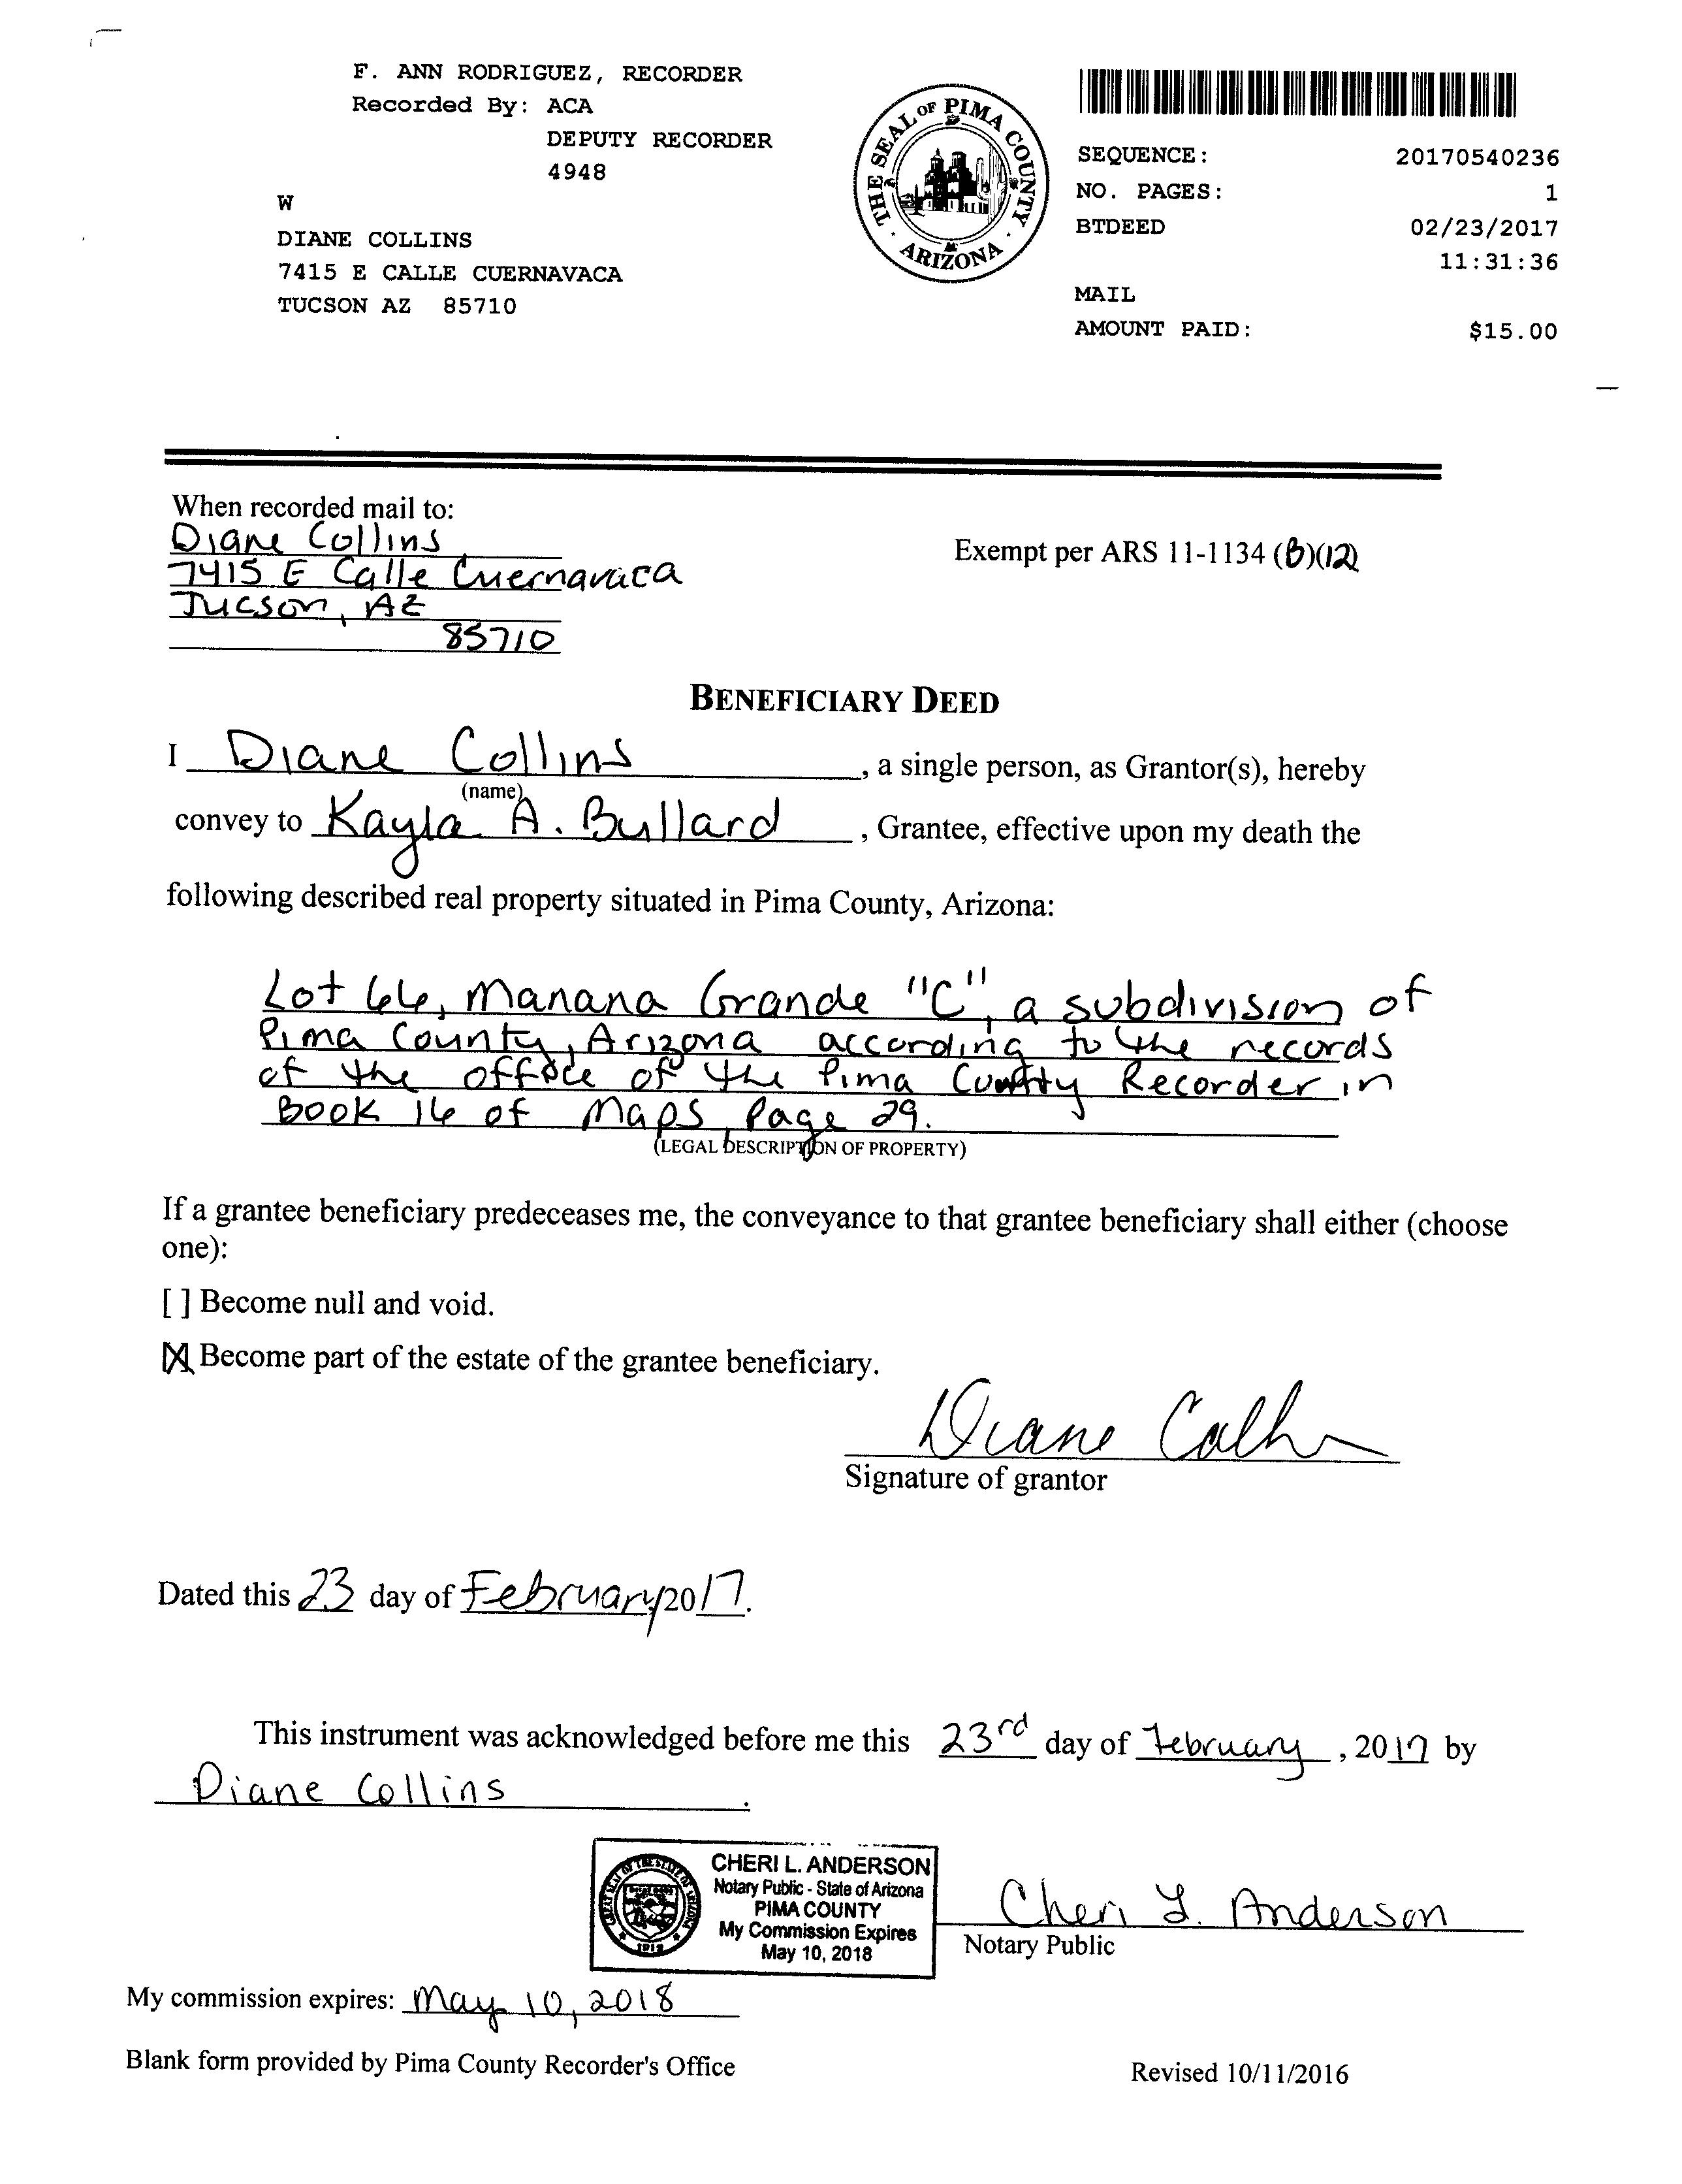 F. ANN RODRIGUEZ, RECORDER
Recorded By: ACA
DEPUTY RECORDER
4948
W
DIANE COLLINS
7415 E CALLE CUERNAVACA
TUCSON AZ 85710
THE SEAL OF PIMA COUNTY
ARIZONA
SEQUENCE: 20170540236
NO. PAGES: 1
BTDEED 02/23/2017
11:31:36
MAIL
AMOUNT PAID: $15.00
When recorded mail to:
Diane Collins
7415 E Calle Cuernavaca
Tucson, AZ
85710
Exempt per ARS 11-1134 (B)(12)
BENEFICIARY DEED
I Diane Collins, a single person, as Grantor(s), hereby
(name)
convey to Kayla A. Bullard, Grantee, effective upon my death the
following described real property situated in Pima County, Arizona:
Lot 66, Manana Grande "C", a subdivision of
Pima County, Arizona according to the records
of the office of the Pima County Recorder in
Book 16 of Maps, Page 29.
(LEGAL DESCRIPTION OF PROPERTY)
If a grantee beneficiary predeceases me, the conveyance to that grantee beneficiary shall either (choose
one):
[ ] Become null and void.
[X] Become part of the estate of the grantee beneficiary.
Diane Collins
Signature of grantor
Dated this 23 day of February, 2017.
This instrument was acknowledged before me this 23rd day of February, 2017 by
Diane Collins.
GREAT SEAL OF THE STATE OF ARIZONA
1912
CHERI L. ANDERSON
Notary Public - State of Arizona
PIMA COUNTY
My Commission Expires
May 10, 2018
Cheri L. Anderson
Notary Public
My commission expires: May 10, 2018
Blank form provided by Pima County Recorder's Office
Revised 10/11/2016